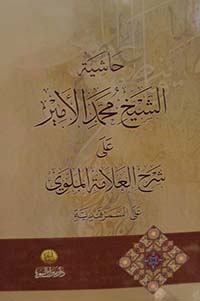 حاشية
الشيخ محمد الأمير
على
شرح العلامة الملوي
على السمرقندية